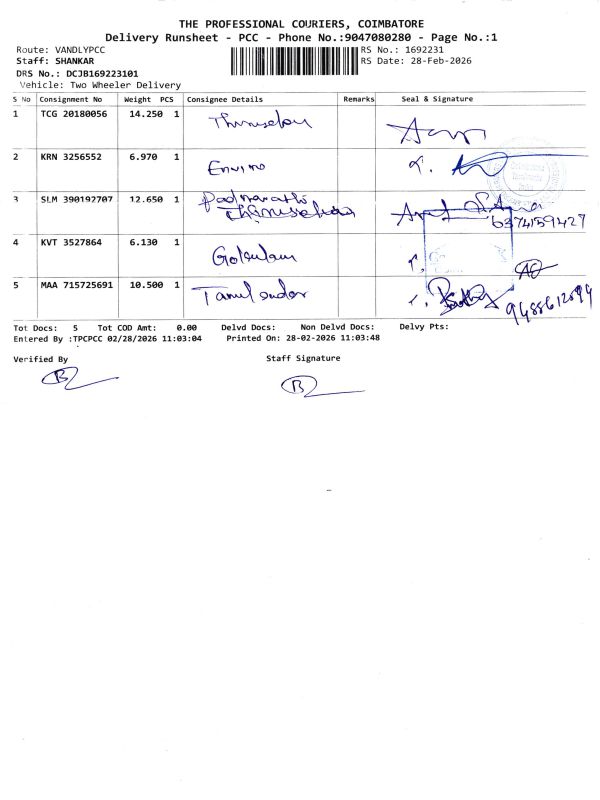 THE PROFESSIONAL COURIERS, COIMBATORE
Delivery Runsheet - PCC - Phone No.:9047080280 - Page No.:1
Route: VANDLYPCC RS No.: 1692231
Staff: SHANKAR RS Date: 28-Feb-2026
DRS No.: DCJB169223101
Vehicle: Two Wheeler Delivery
S No Consignment No Weight PCS Consignee Details Remarks Seal & Signature
1 TCG 20180056 14.250 1
2 KRN 3256552 6.970 1 Enviro
3 SLM 390192707 12.650 1
6374159427
4 KVT 3527864 6.130 1 Gokulam
5 MAA 715725691 10.500 1
Tot Docs: 5 Tot COD Amt: 0.00 Delvd Docs: Non Delvd Docs: Delvy Pts:
Entered By :TPCPCC 02/28/2026 11:03:04 Printed On: 28-02-2026 11:03:48
Verified By Staff Signature